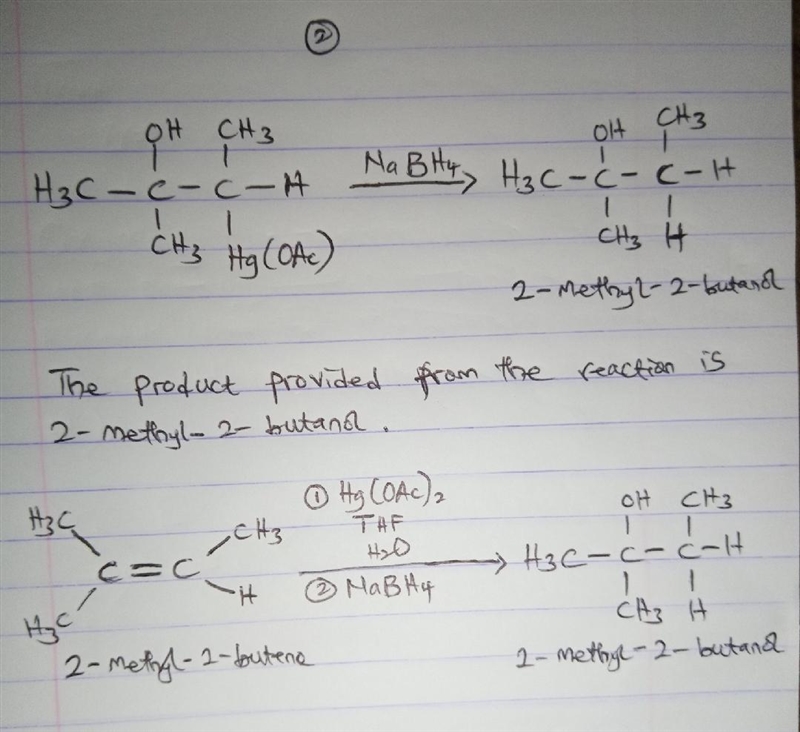 ②
OH CH3 CH3
OH
H3C - C - C - H NaBH4 H3C - C - C - H
CH3 Hg(OAc) CH3 H
2-methyl-2-butanol
The product provided from the reaction is
2-methyl-2-butanol.
① Hg(OAc)2 OH CH3
H3C CH3 THF
H2O
C=C H3C - C - C - H
H ② NaBH4
H3C CH3 H
2-methyl-2-butene 2-methyl-2-butanol